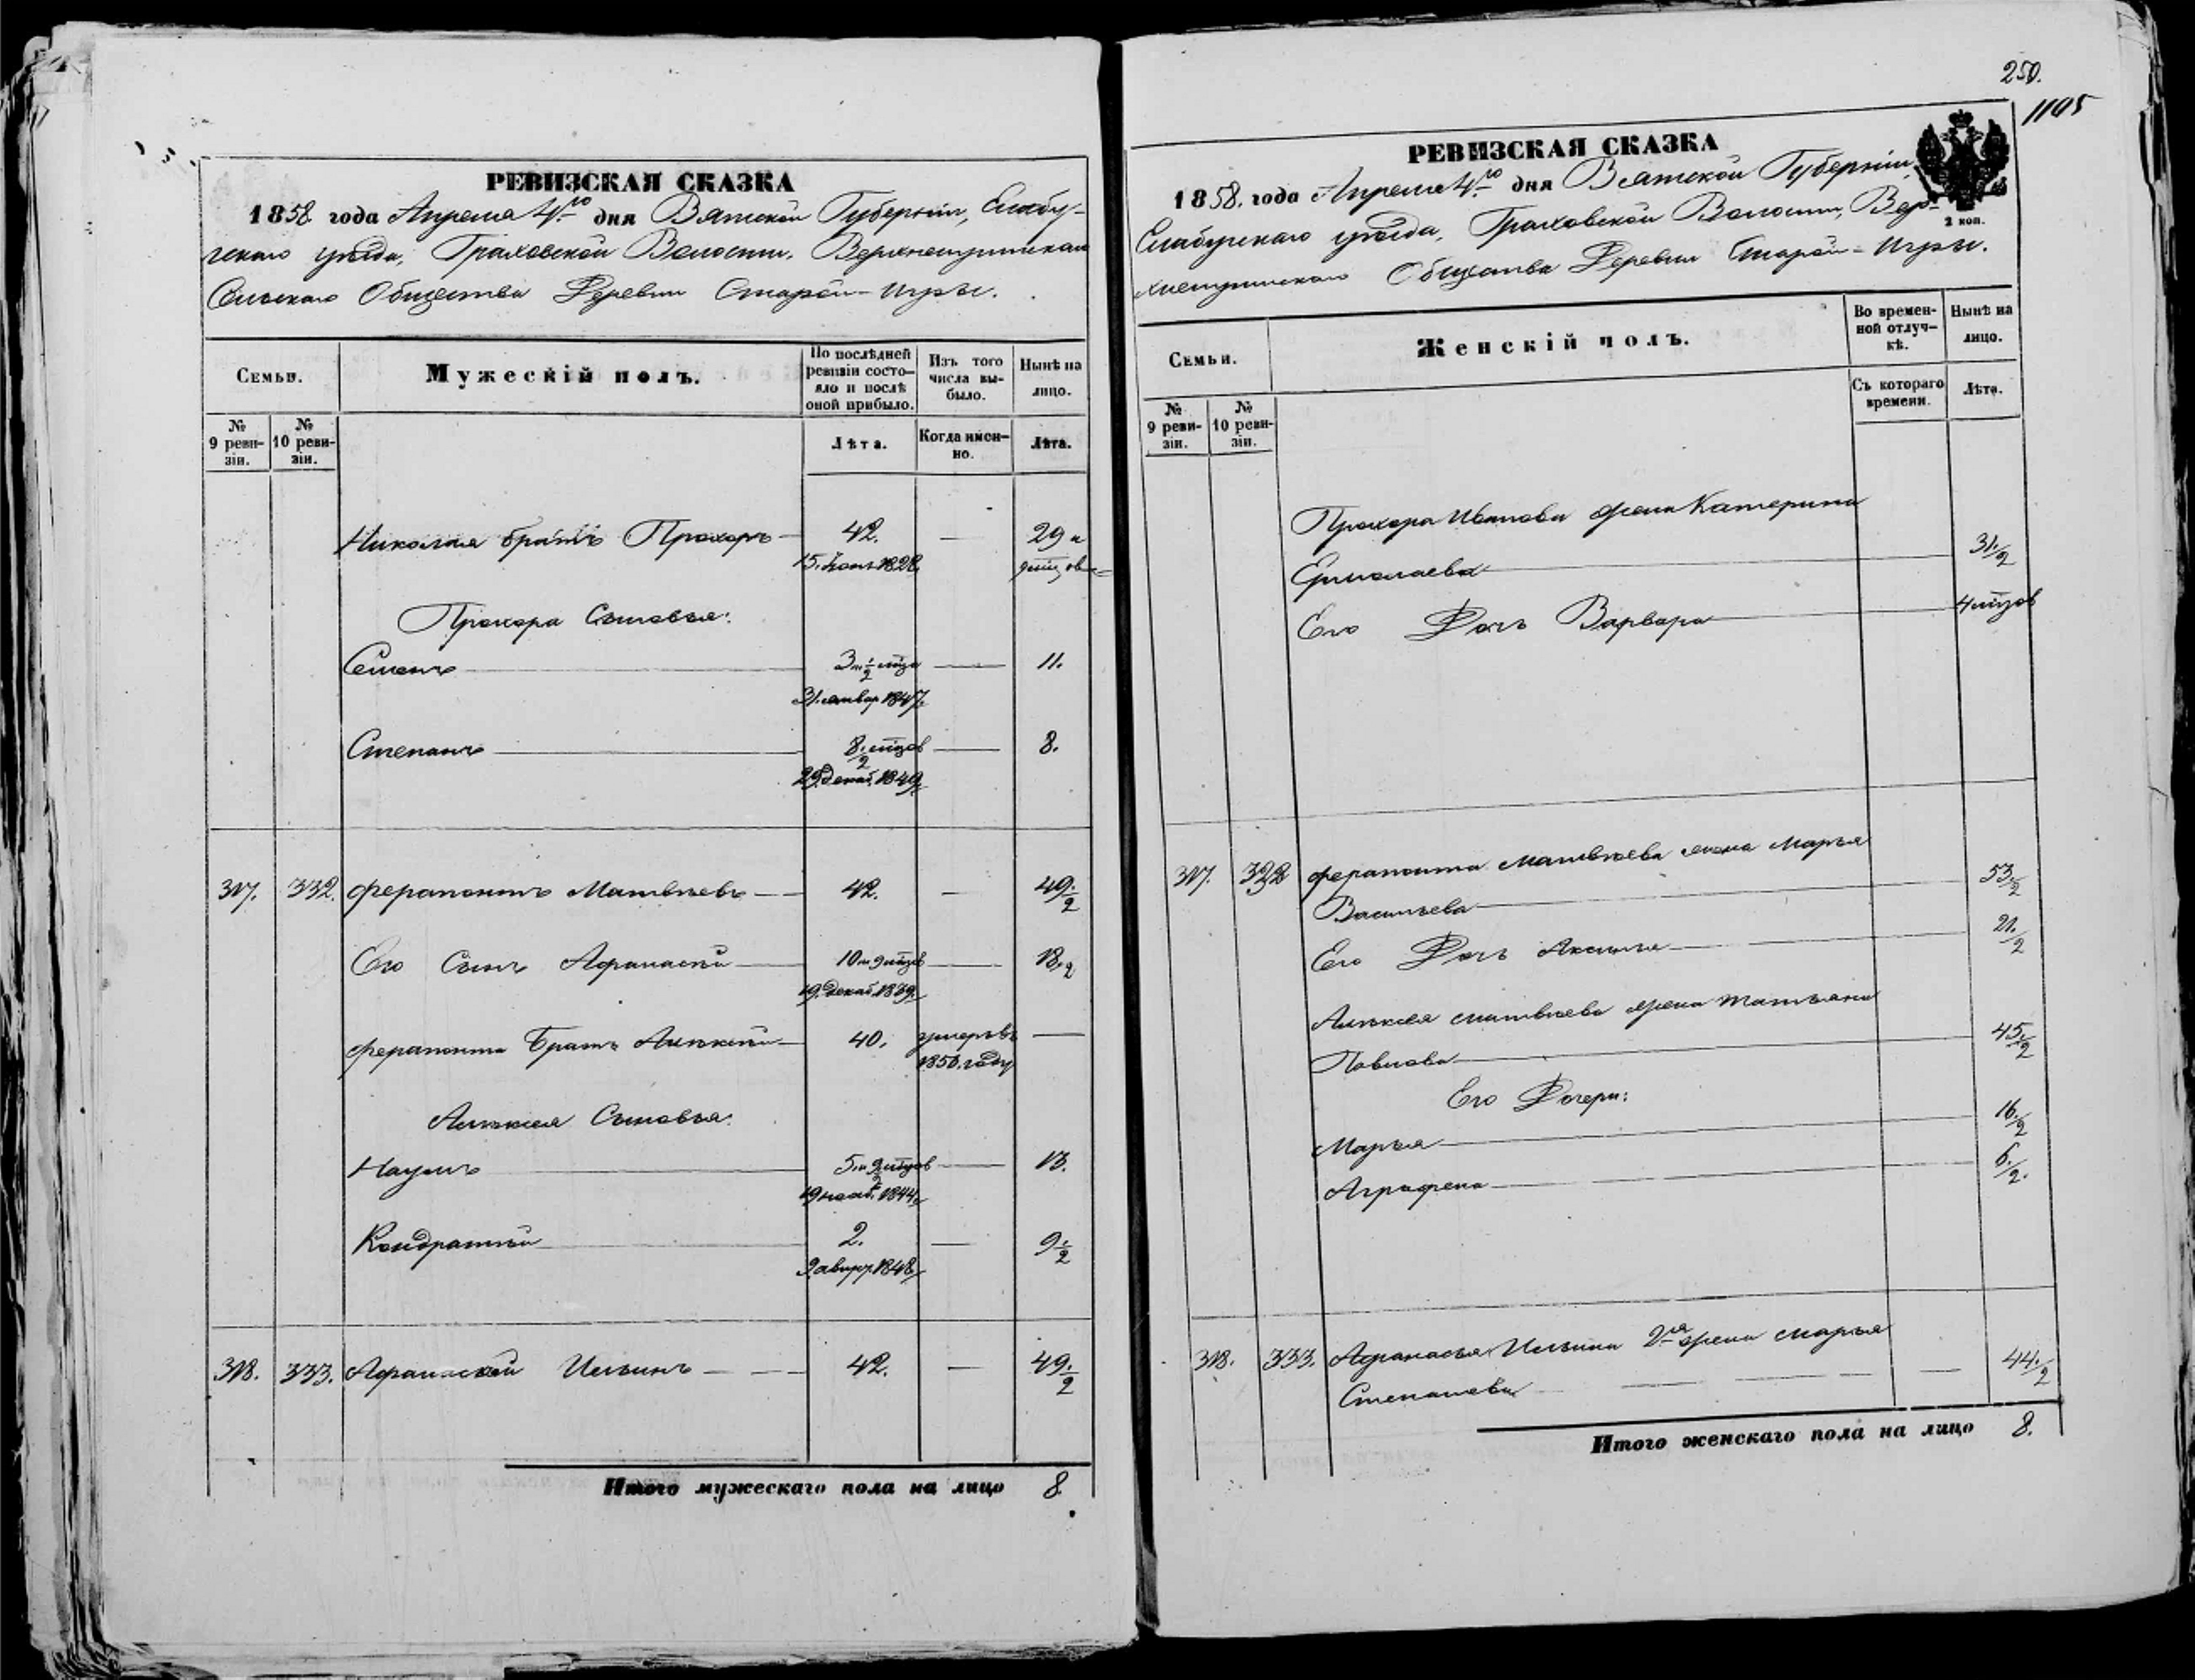 РЕВИЗСКАЯ СКАЗКА
1858 года Апреля 4го дня Вятской Губерніи, Елабу-
гскаго уѣзда, Граховской Волости, Верхнеигринскаго
Сельскаго Общества Деревни Старой-Игры.
Семьи.
Мужескій полъ.
По послѣдней ревизіи состо-яло и послѣ оной прибыло.
Изъ того числа вы-было.
Нынѣ на лицо.
№ 9 реви-зіи.
№ 10 реви-зіи.
Лѣта.
Когда имен-но.
Лѣта.
Николая братъ Прохоръ 42. — 29 и
15. 1828.
Прохора Сыновья:
Семенъ — 11.
31. январ 1847.
Степанъ — 8.
29 декаб. 1849.
317. 332. Ферапонтъ Матвѣевъ 42. — 49 1/2
Его Сынъ Афанасій — 18 1/2
19. декаб. 1839.
Ферапонта Братъ Алексѣй 40. умеръ въ —
1850. году
Алексея Сыновья:
Наумъ — 13.
19 нояб. 1844.
Кондратій 2. — 9 1/2
1848.
318. 333. Афанасій Ильинъ 42. — 49 1/2
Итого мужескаго пола на лицо 8.
250.
1195
РЕВИЗСКАЯ СКАЗКА
1858. года Апреля 4го дня Вятской Губерніи,
Елабугскаго уѣзда, Граховской Волости, Вер-
2 коп.
хнеигринскаго Общества Деревни Старой-Игры.
Семьи.
Женскій полъ.
Во времен-ной отлуч-кѣ.
Нынѣ на лицо.
№ 9 реви-зіи.
№ 10 реви-зіи.
Съ котораго времени.
Лѣта.
Прохора Иванова жена Катерина
Ермолаева 31 1/2
Его Дочь Варвара 4 мѣсяцов
317. 332 Ферапонта Матвѣева жена Марья
Васильева 53 1/2
Его Дочь Аксинья 21 1/2
Алексея Матвѣева жена Татьяна
Павлова 45 1/2
Его Дочери:
Марья 16 1/2
Аграфена 6 1/2.
318. 333. Афанасья Ильина 2я жена Марья
Степанова — 44 1/2
Итого женскаго пола на лицо 8.